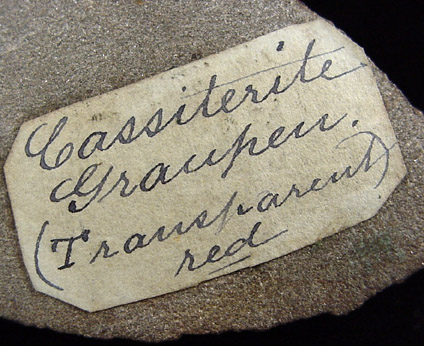 Cassiterite
Graupen.
(Transparent)
red